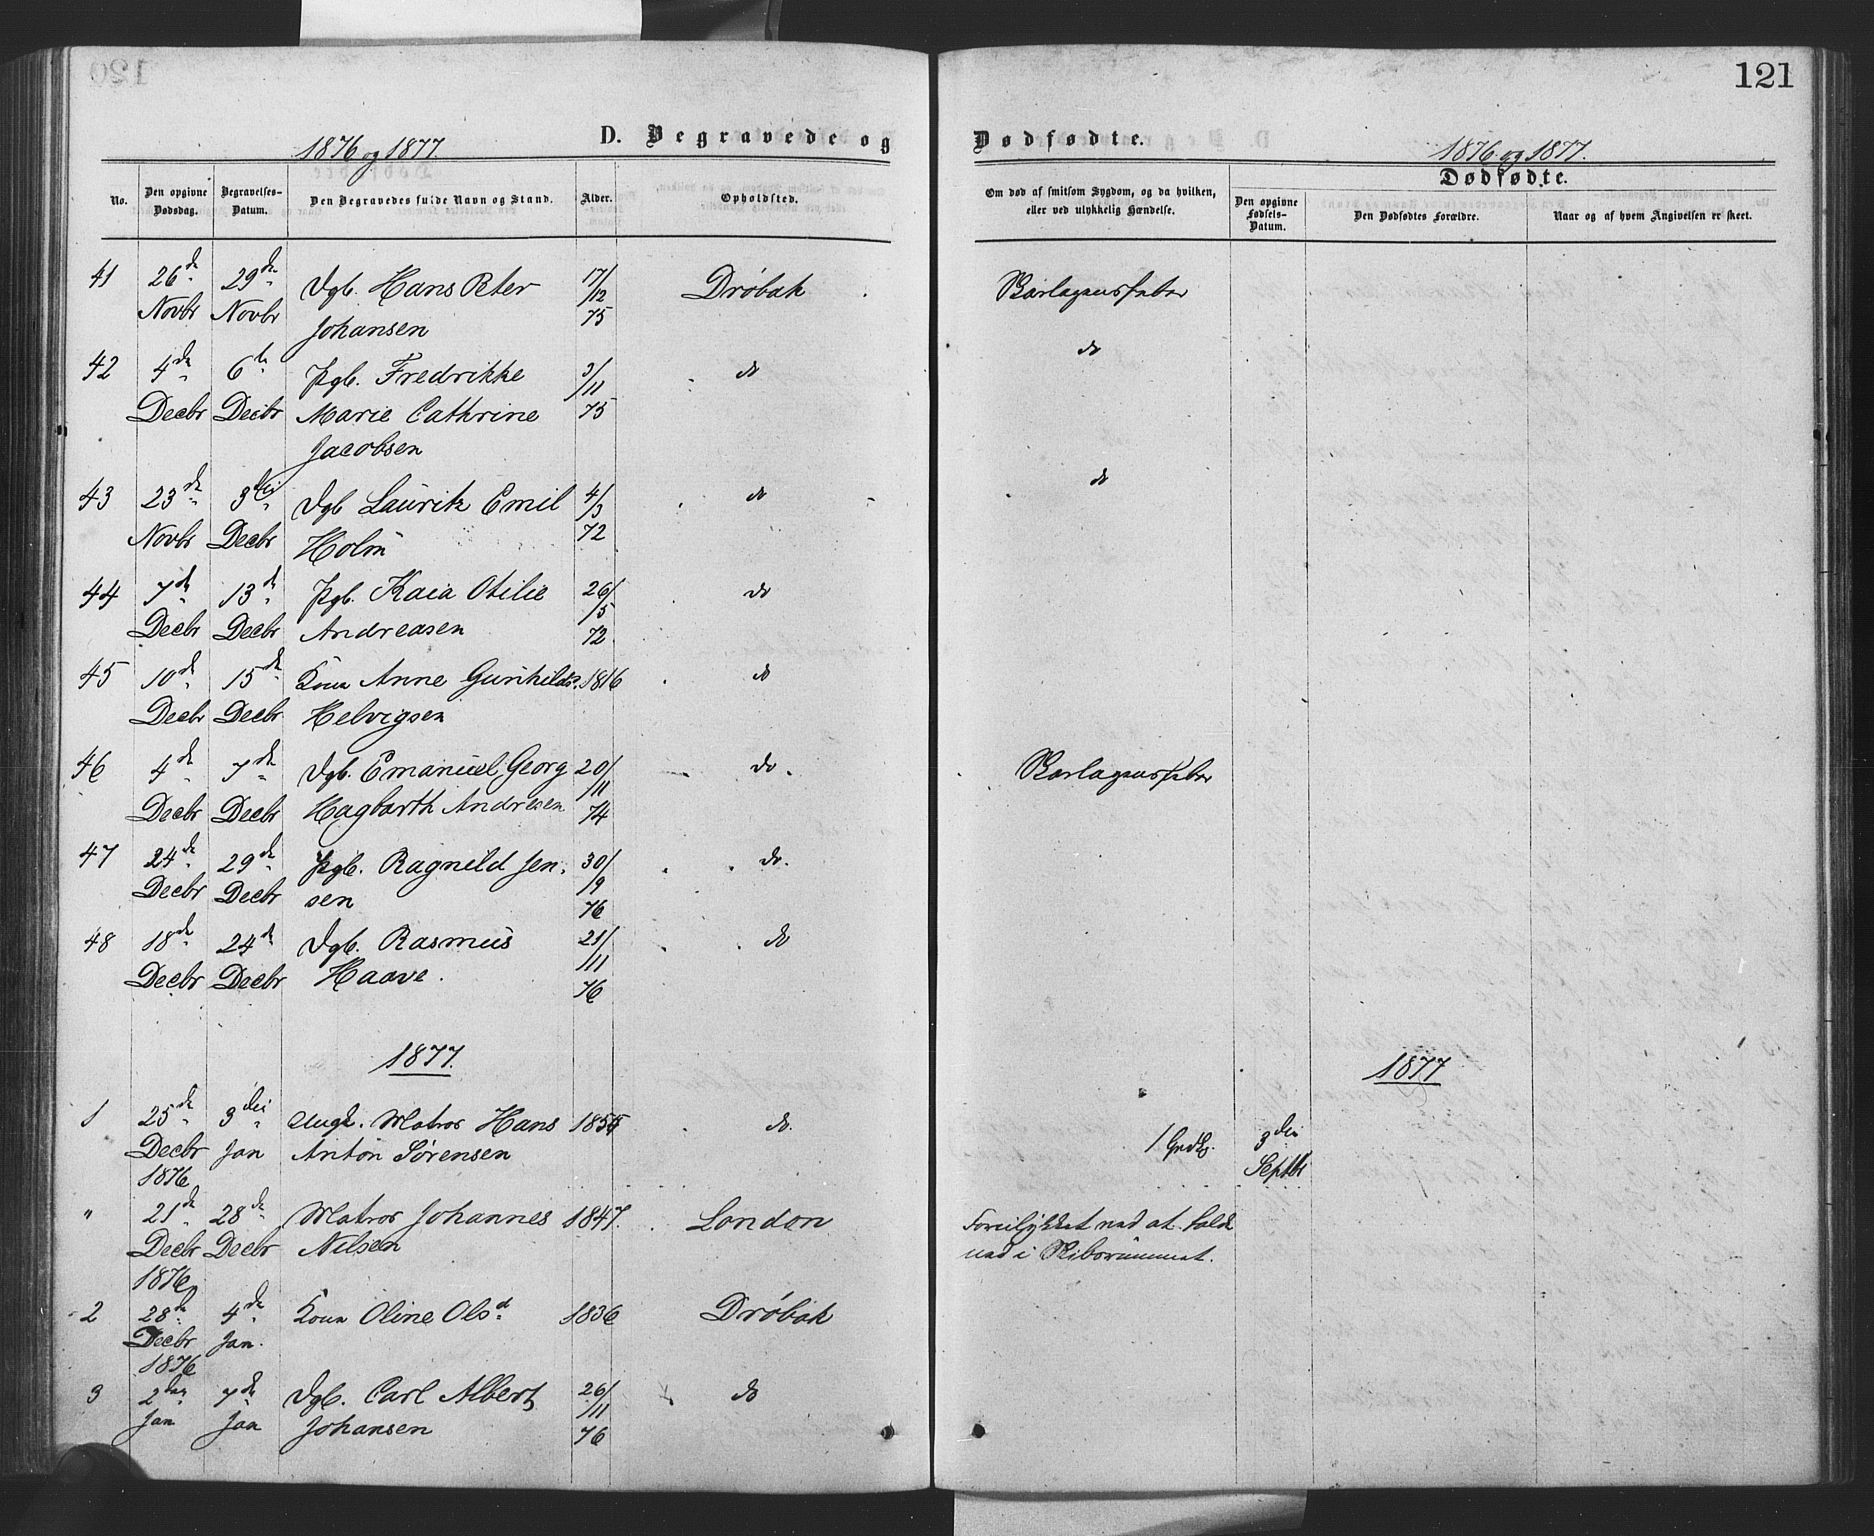 120
121
D. Begravede og
Dødfødte.
1876 og 1877.
1876 og 1877.
No.
Den opgivne Dødsdag.
Begravelses-Datum.
Den Begravedes fulde Navn og Stand.
Alder.
Opholdsted.
Om død af smitsom Sygdom, og da hvilken, eller ved ulykkelig Hændelse.
Dødfødte.
Den opgivne Fødsels-Datum.
Den Dødfødtes Forældre.
Naar og af hvem Angivelsen er skeet.
41 26de 29de Dgb. Hans Peter 17/12 Drøbak Skarlagensfeber
Novbr Novbr Johansen 75
42 4de 6te Pgb. Fredrikke 3/11 do do
Decbr Decbr Marie Cathrine 75
Jacobsen
43 23de 3die Dgb Lauritz Emil 4/3 do do
Novbr Decbr Holm 72
44 7de 13de Pgb. Kaia Otilie 26/5 do
Decbr Decbr Andreasen 72
45 10de 15de Kone Anne Gunhilda 1816 do
Decbr Decbr Helvigsen
46 4de 7de Dgb. Emanuel Georg 20/11 do. Skarlagensfeber
Decbr Decbr Hagbarth Andresen 74
47 24de 29de Pgb. Ragnild Jen- 30/9 do.
Decbr Decbr sen 76
48 18de 24de Dgb. Rasmus 21/11 do
Decbr Decbr Haave. 76
1877.
1877
1 25de 3die Ungk. Matros Hans 185 do. 3die
Decbr Jan Anton Sørensen Septbr
1876
" 21de 28de Matros Johannes 1847. London Forulykket ved at falde
Decbr Decbr Nilsen ned i Skibsrummet.
1876
2 28de 4de Kone Oline Olsd 1836 Drøbak
Decbr Jan.
1876
3 2den 7de Dgb. Carl Albert 26/11 do
Jan Jan Johansen 76